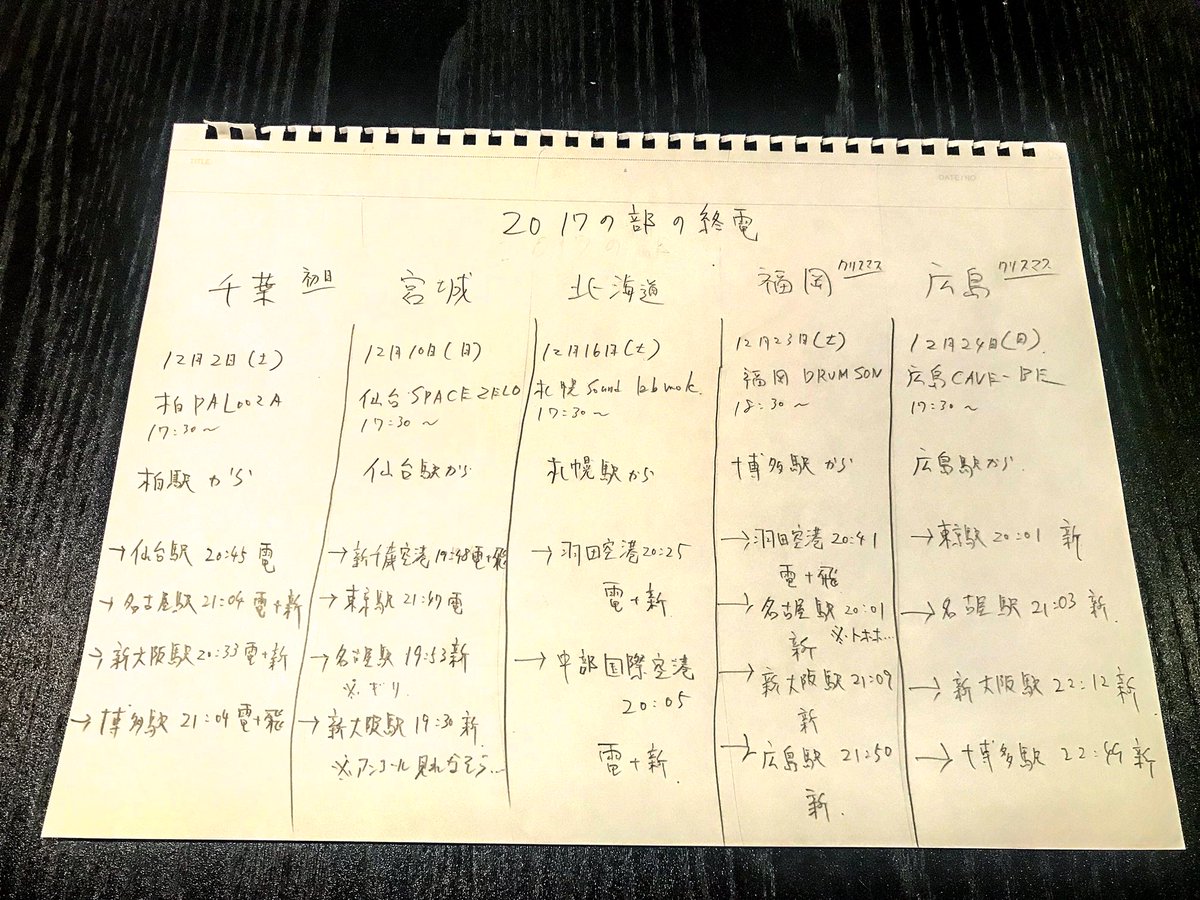 TITLE
DATE/NO
2017の部の終電
千葉 初日
12月2日(土)
柏PALOOZA
17:30〜
柏駅から
→仙台駅 20:45 電
→名古屋駅 21:04 電+新
→新大阪駅 20:33 電+新
→博多駅 21:04 電+飛
宮城
12月10日(日)
仙台SPACE ZELO
17:30〜
仙台駅から
→新千歳空港 19:48 電+飛
→東京駅 21:47 電
→名古屋駅 19:53 新
※ギリ
→新大阪駅 19:30 新
※アンコール見れなそう…
北海道
12月16日(土)
札幌 Sound lab mole.
17:30〜
札幌駅から
→羽田空港 20:25
電+新
→中部国際空港
20:05
電+新.
福岡 クリスマス
12月23日(土)
福岡 DRUM SON
18:30〜
博多駅から
→羽田空港 20:41
電+飛
→名古屋駅 20:01
新 ※トホホ…
→新大阪駅 21:09
新
→広島駅 21:50
新.
広島 クリスマス
12月24日(日).
広島CAVE-BE
17:30〜
広島駅から.
→東京駅 20:01 新
→名古屋駅 21:03 新
→新大阪駅 22:12 新
→博多駅 22:49 新